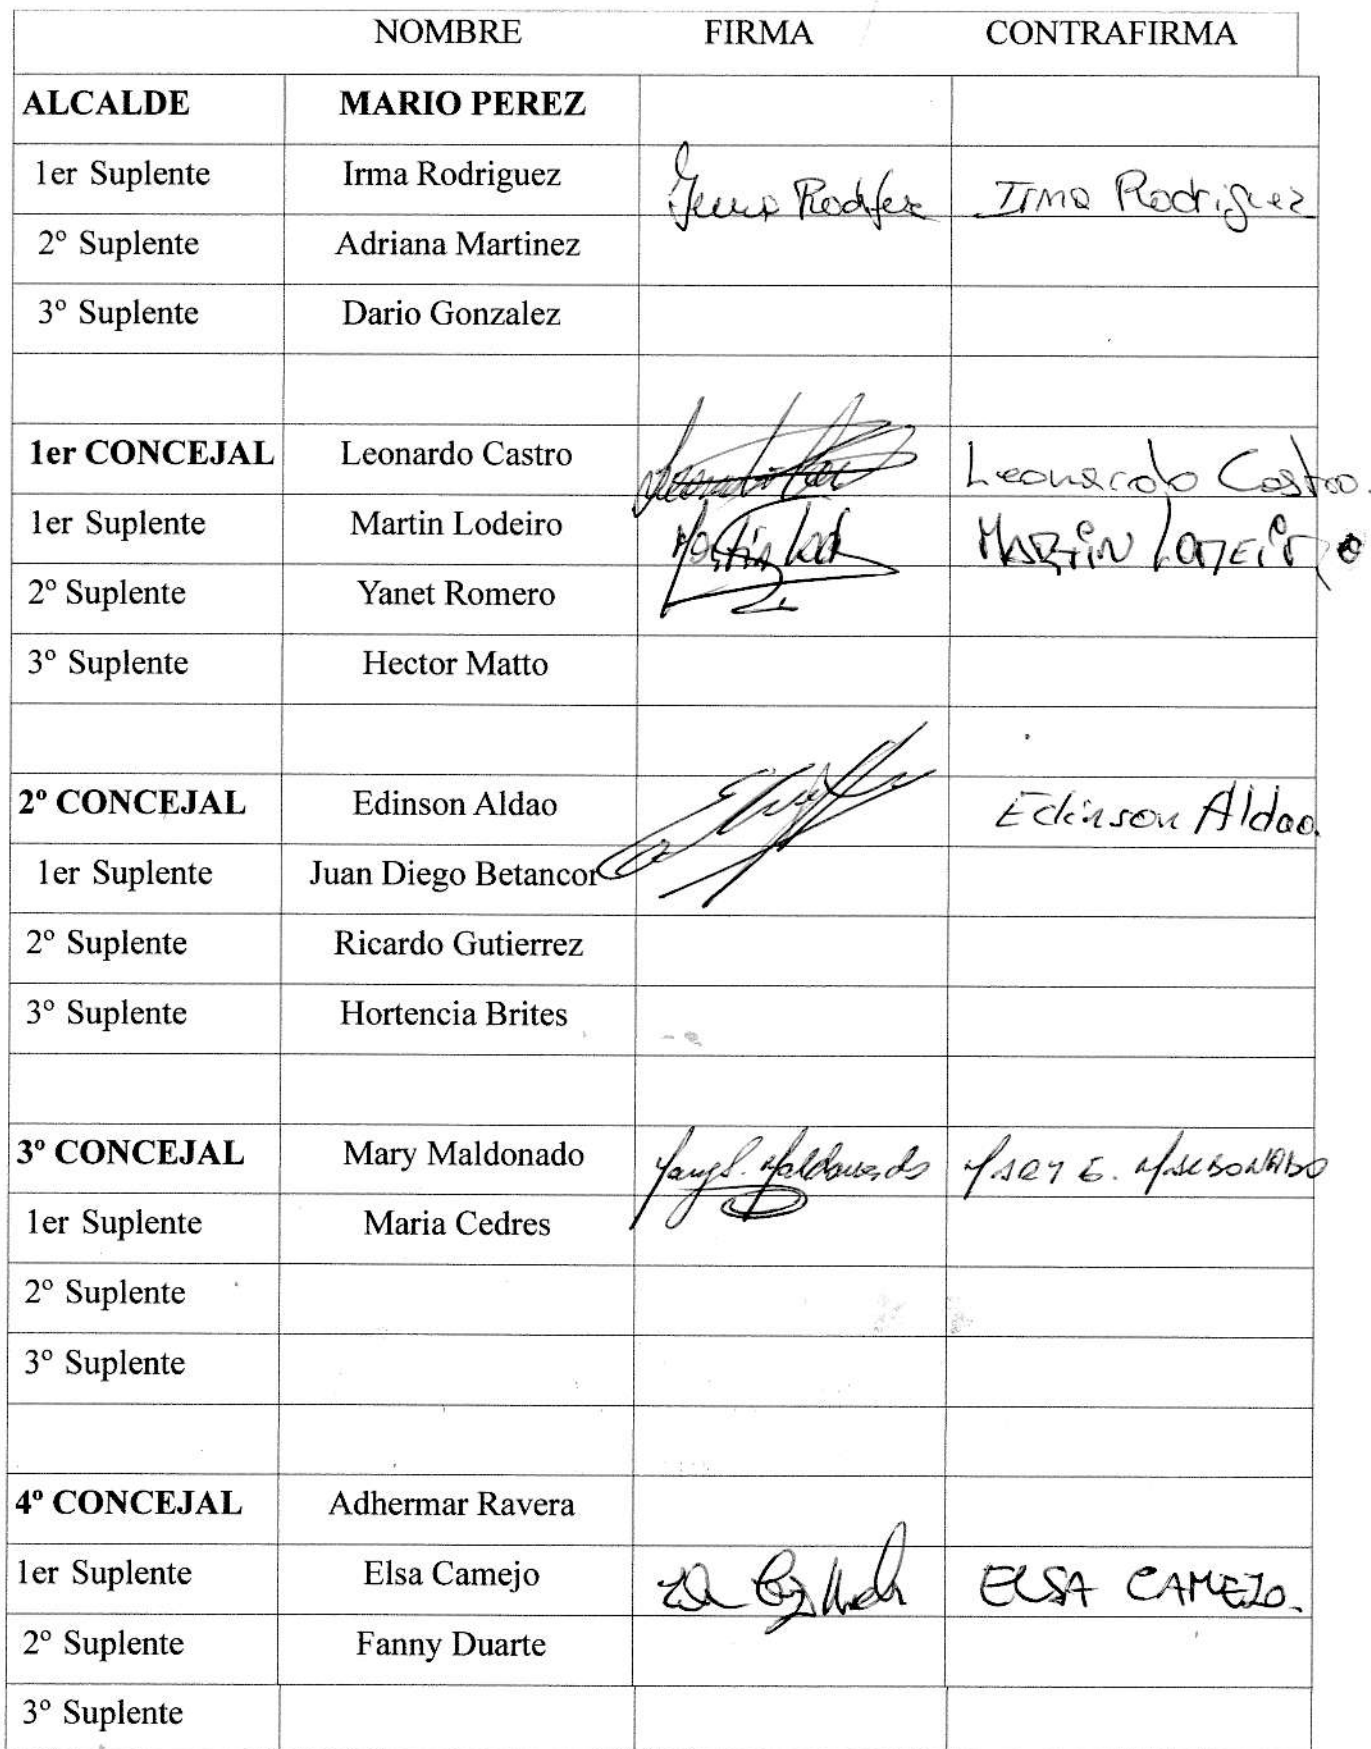 NOMBRE FIRMA CONTRAFIRMA
ALCALDE MARIO PEREZ
1er Suplente Irma Rodriguez Irma Rodriguez
2º Suplente Adriana Martinez
3º Suplente Dario Gonzalez
1er CONCEJAL Leonardo Castro Leonardo Castro.
1er Suplente Martin Lodeiro MARTiN LODEiRO
2º Suplente Yanet Romero
3º Suplente Hector Matto
2º CONCEJAL Edinson Aldao Edinson Aldao.
1er Suplente Juan Diego Betancor
2º Suplente Ricardo Gutierrez
3º Suplente Hortencia Brites
3º CONCEJAL Mary Maldonado Mary E. Maldonado MARY E. MALDONADO
1er Suplente Maria Cedres
2º Suplente
3º Suplente
4º CONCEJAL Adhermar Ravera
1er Suplente Elsa Camejo ELSA CAMEJO.
2º Suplente Fanny Duarte
3º Suplente